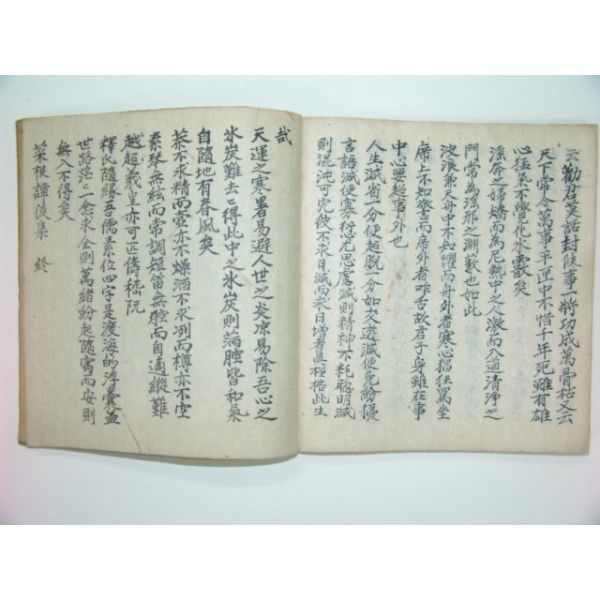 云勸君莫話封候事一將功成萬骨枯又云
天下常令萬事平匣中不惜千年死雖有雄
心猛氣不覺化氷霰矣
淫奔之婦矯而為尼熱中之人激而入道清淨之
門常為淫邪之淵藪也如此
波浪兼天舟中不知懼而舟外者寒心猖狂罵坐
席上不知警而席外者咋舌故君子身雖在事
中心要超事外也
人生減省一分便超脫一分如交遊減便免紛擾
言語減便寡愆尤思慮減則精神不耗聰明減
則混沌可完彼不求日減而求日增者眞桎梏此生
哉
天運之寒暑易避人世之炎凉易除吾心之
氷炭難去得此中之氷炭則滿腔皆和氣
自隨地有春風矣
茶不求精而壺亦不燥酒不求冽而樽亦不空
素琴無絃而常調短笛無腔而自適縱難
越超羲皇亦可匹儔嵇阮
釋氏隨緣吾儒素位四字是渡海的浮囊盖
世路茫々一念求全則萬緒紛起隨寓而安則
無入不得矣
菜根譚後集 終